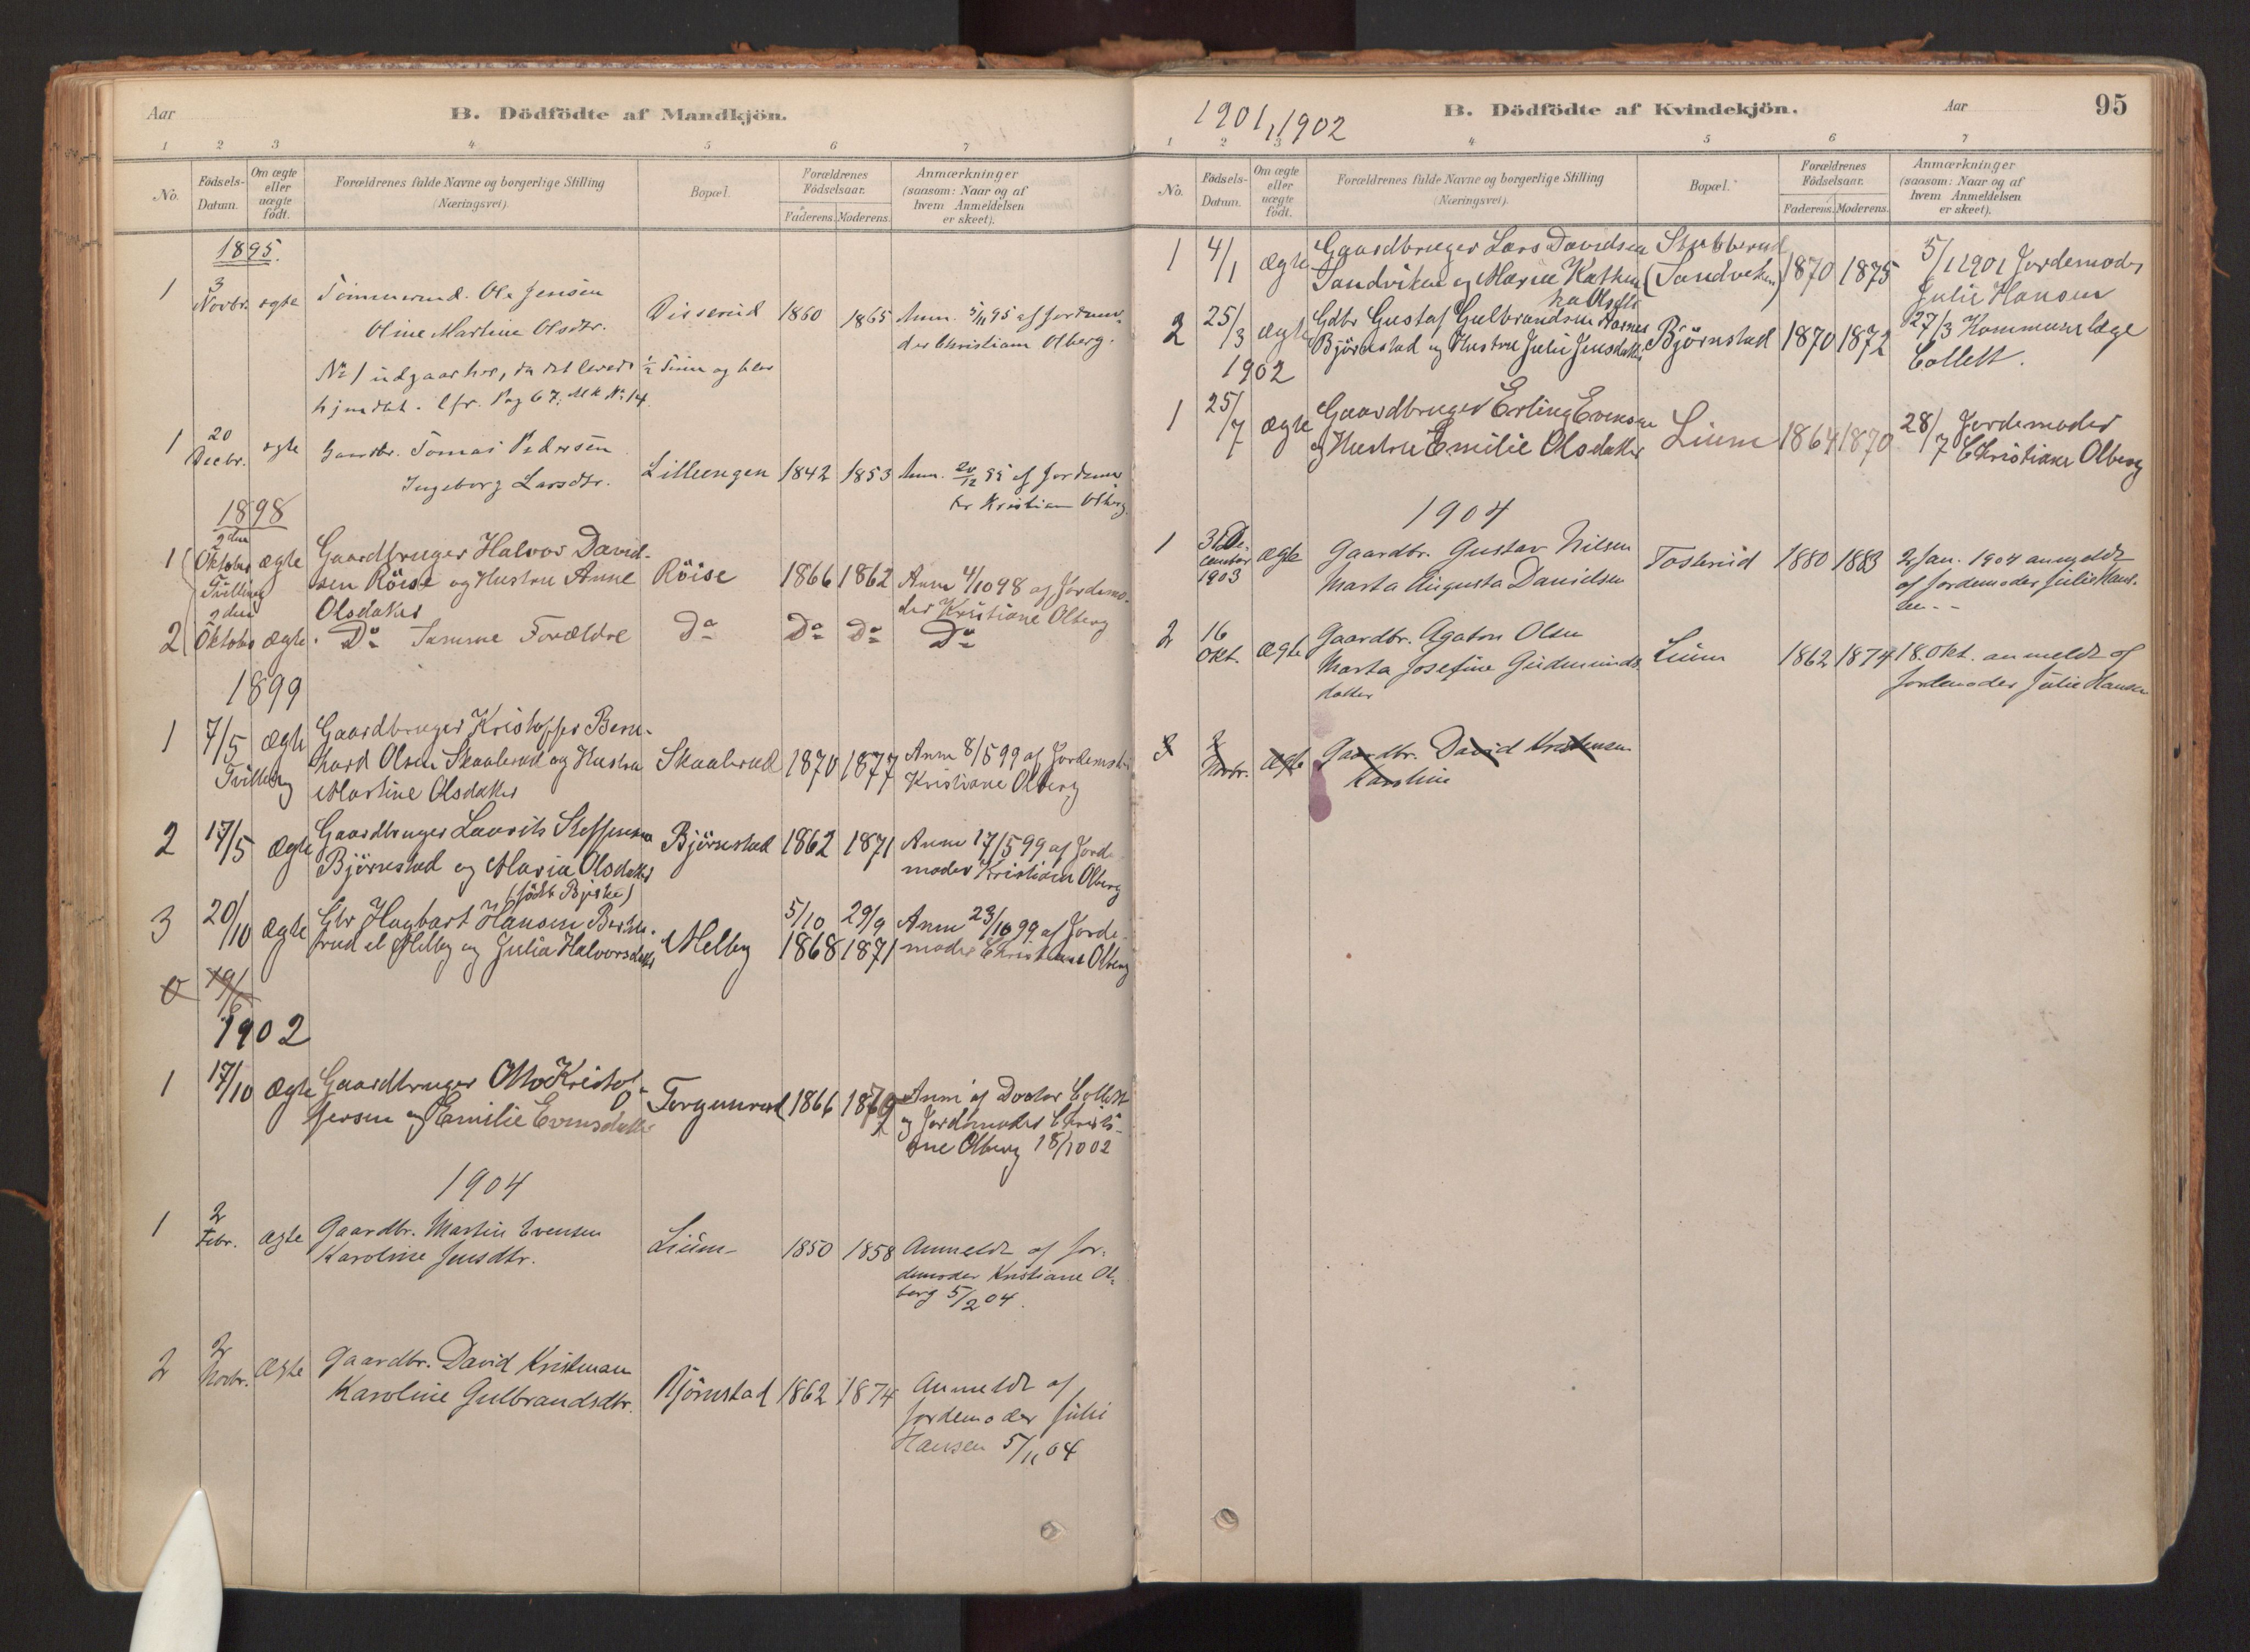 Aar
B. Dödfödte af Mandkjön.
1 2 3 4 5 6 7
No.
Födsels-
Datum.
Om ægte
eller
uægte
födt.
Forældrenes fulde Navne og borgerlige Stilling
(Næringsvei).
Bopæl.
Forældrenes
Födselsaar.
Faderens. Moderens.
Anmærkninger
(saasom: Naar og af
hvem Anmeldelsen
er skeet).
1895.
1 3 Novbr. ægte Tömmermd. Ole Jensen
Oline Martine Olsdtr. 1860 1865 Anm. 5/11 95 af Jordemo-
der Christiane Olberg.
No 1 udgaar her, da det levede ½ Time og blev
hjemdøbt. Cfr. Pag 67. MK No 14.
1 20 Decbr. ægte Gaardbr. Tomas Pedersen
Ingeborg Larsdtr. Lilleengen 1842 1853 Anm. 20/12 95 af Jordemo
der Kristiane Olberg.
1898
1 2den Oktober Tvilling ægte Gaardbruger Halvor David-
sen Röise og Hustru Anne
Olsdatter Röise 1866 1862 Anm 4/10 98 af Jordemo-
der Kristiane Olberg
2 2den Oktober ægte Do Samme Forældre Do Do Do Do
1899
1 7/5 Tvilling ægte Gaardbruger Kristoffer Bern-
hard Olsen Skaalerud og Hustru
Martine Olsdatter Skaalerud 1870 1877 Anm 8/5 99 af Jordemoder
Kristiane Olberg
2 17/5 ægte Gaardbruger Laurits Steffensen
Björnestad og Maria Olsdatter Björnestad 1862 1871 Anm 17/5 99 af Jorde-
moder Kristiane Olberg
3 20/10 ægte Gbr Hagbart Hansen
Melby og Julia Halvorsdatter Melby 5/10 1868 29/9 1871 Anm 23/10 99 af Jorde-
moder Christiane Olberg
0 19/6
1902
1 17/10 ægte Gaardbruger Otto Kristof-
fersen og Emilie Evensdatter Torgunrud 1866 Anm af Doctor Collett
og Jordemoder Christi-
ane Olberg 18/10 02
1904
1 2 Febr. ægte Gaardbr. Martin Evensen
Karoline Jensdtr. Lium 1850 1858 Anmeldt af Jor-
demoder Kristiane Ol-
berg 5/2 04.
2 2 Novbr. ægte Gaardbr. David Kristensen
Karoline Gulbrandsdtr. Björnstad 1862 1874 Anmeldt af
Jordemoder Julie
Hansen 5/11 04
1901, 1902
B. Dödfödte af Kvindekjön.
Aar
95
1 2 3 4 5 6 7
No.
Födsels-
Datum.
Om ægte
eller
uægte
födt.
Forældrenes fulde Navne og borgerlige Stilling
(Næringsvei).
Bopæl.
Forældrenes
Födselsaar.
Faderens. Moderens.
Anmærkninger
(saasom: Naar og af
hvem Anmeldelsen
er skeet).
1 4/1 ægte Gaardbruger Lars Davidsen
Sandviken og Marie Kathri-
na Olsdtr Stubberud
(Sandviken) 1870 1875 5/1 1901 Jordemoder
Julie Hansen
2 25/3 ægte Gdbr Gustaf Gulbrandsen
Björnestad og Hustru Julie Jensdatter Björnstad 1870 1872 27/3 Kommunelæge
Collett.
1902
1 25/7 ægte Gaardbruger Erling Evensen
og Hustru Emilie Olsdatter Lium 1864 1870 28/7 Jordemoder
Christiane Olberg
1904
1 31 De-
cember
1903 ægte Gaardbr. Gustav Nilsen
Marta Augusta Danielsen Tosterud 1880 1883 2 Jan. 1904 anmeldt
af Jordemoder Julie Han-
sen.
2 16 Okt. ægte Gaardbr. Agaton Olsen
Marta Josefine Gudmunds
datter Lium 1862 1874 18. Okt. anmeldt af
Jordemoder Julie Hansen
3 2 Novbr. ægte Gaardbr. David Kristensen
Karoline